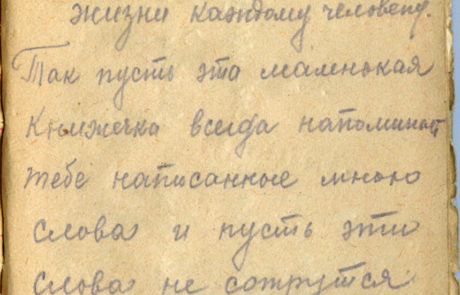 жизни каждому человеку.
Так пусть эта маленькая
Книжечка всегда напоминает
тебе написанное мною
слова и пусть эти
слова не сотрутся